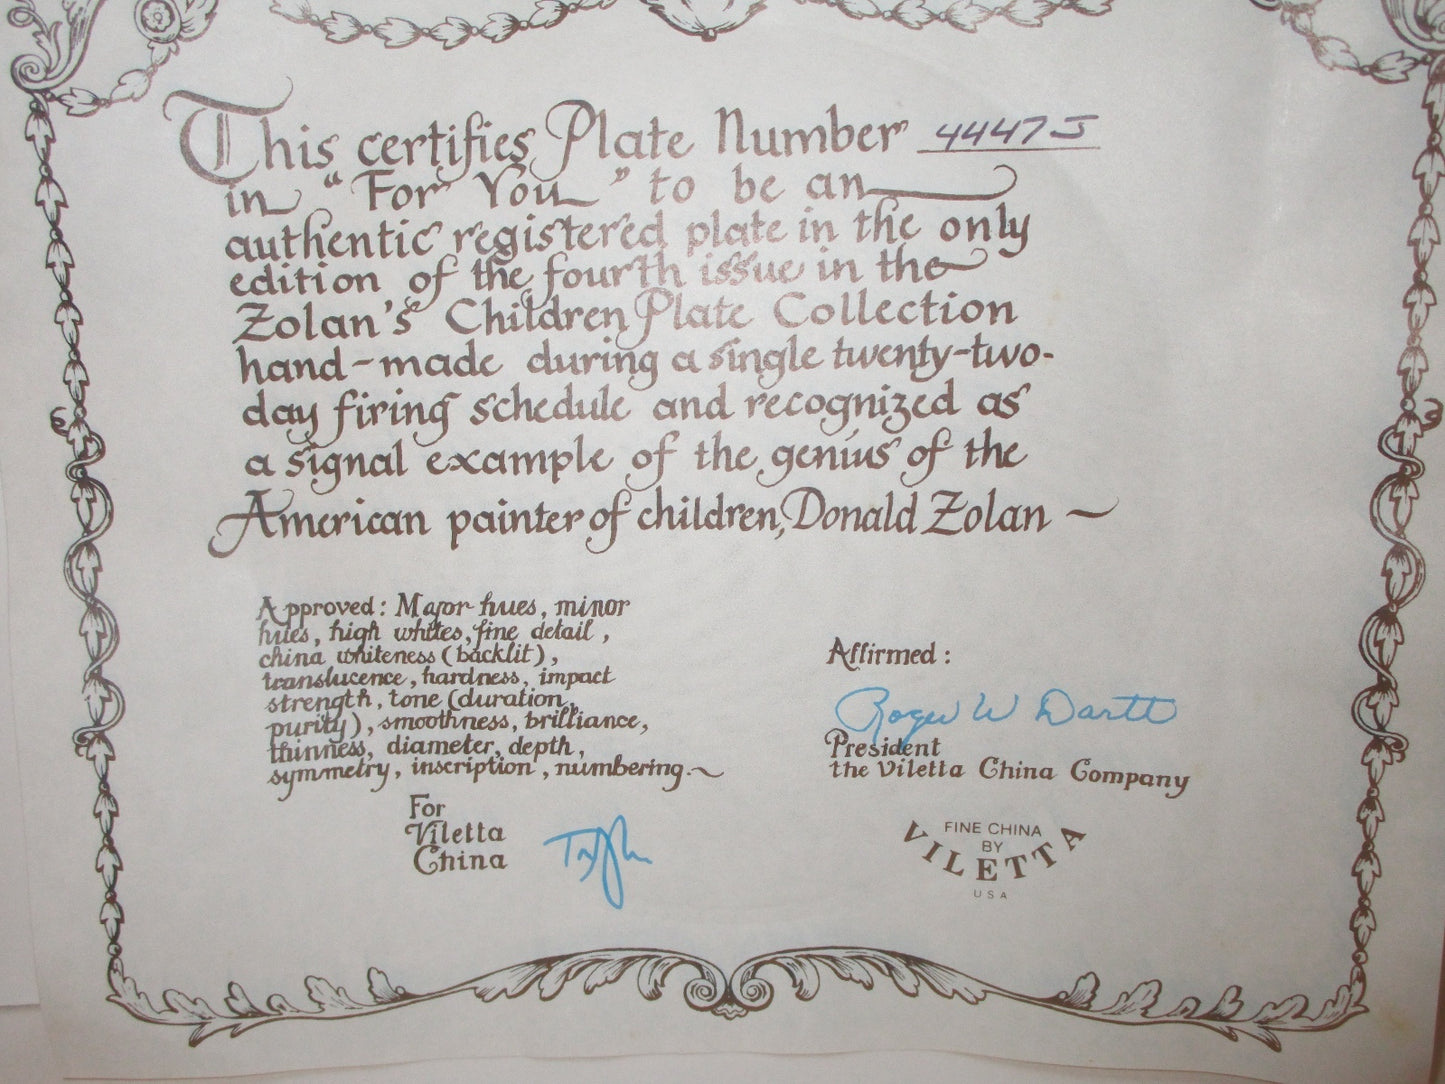 This certifies Plate Number 4447J
in "For You" to be an
authentic registered plate in the only
edition of the fourth issue in the
Zolan's Children Plate Collection
hand-made during a single twenty-two-
day firing schedule and recognized as
a signal example of the genius of the
American painter of children, Donald Zolan ~
Approved: Major hues, minor
hues, high whites, fine detail,
china whiteness (backlit),
translucence, hardness, impact
strength, tone (duration,
purity), smoothness, brilliance,
thinness, diameter, depth,
symmetry, inscription, numbering.~
For
Viletta
China
Affirmed:
Roger W Dartt
President
the Viletta China Company
FINE CHINA
BY
VILETTA
USA